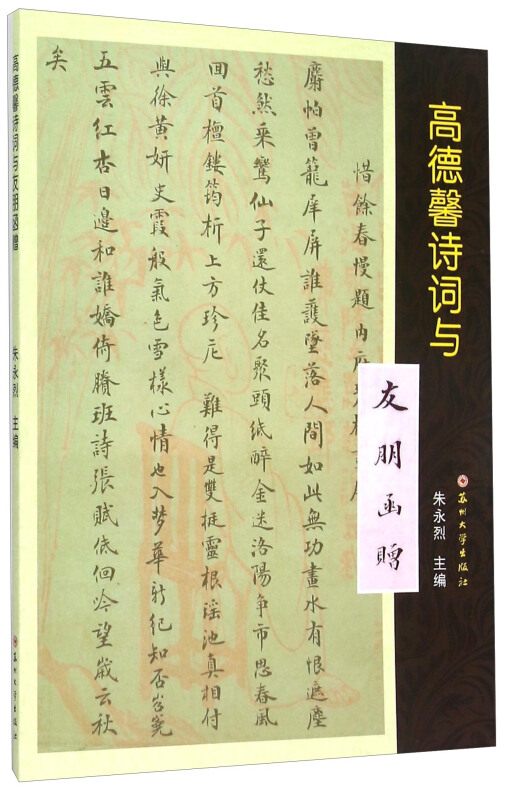 高德馨诗词与
友朋函赠
朱永烈 主编
苏州大学出版社
惜餘春慢題内府
麝怕曾籠犀屏誰護墜落人間如此無功畫水有恨遮塵
愁然乘鸞仙子還仗佳名聚頭紙醉金迷洛陽争市思春風
回首檀鏤筠析上方珍庀 難得是雙挺靈根謡池真相付
與徐黄妍史霞般氣色雪樣心情也入梦華新紀知否宫
五雲红杏日邊和誰嬌倚賸班詩張賦低佪吟望嵗云秋
矣
高德馨诗词与友朋函赠
朱永烈 主编
苏州大学出版社